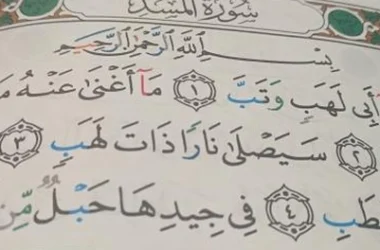 سُورَةُ المَسَدِ
بِسْمِ ٱللَّهِ ٱلرَّحْمَٰنِ ٱلرَّحِيمِ
أَبِى لَهَبٍ وَتَبَّ ١ مَآ أَغْنَىٰ عَنْهُ
٢ سَيَصْلَىٰ نَارًا ذَاتَ لَهَبٍ ٣
٤ فِى جِيدِهَا حَبْلٌ مِّن